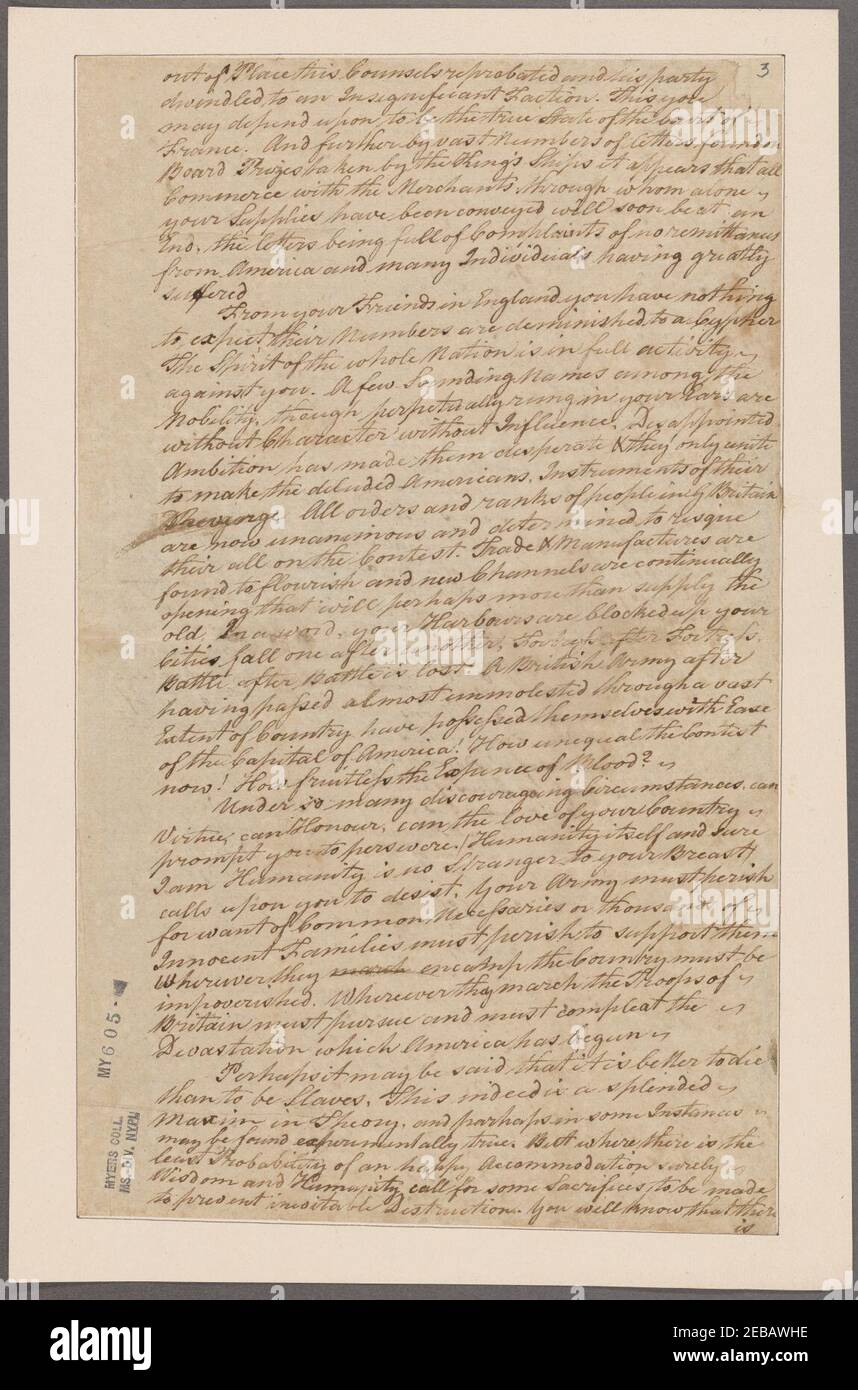 3
out of Place this Counsels reprobated and his party
dwindled, to an Insignificant Faction. This you
may depend upon to be the true State of the Court of
France. And further by vast Numbers of letters found on
Board Prizes taken by the Kings Ships it appears that all
Commerce with the Merchants, through whom alone
your Supplies have been conveyed will soon be at an
End, the letters being full of Complaints of no remittances
from America and many Individuals having greatly
suffered
From your Friends in England you have nothing
to expect their Numbers are deminished to a Cypher
The Spirit of the whole Nation is in full activity
against you. A few Sounding Names among the
Nobility, though perpetually rung in your Ears are
without Character without Influence. Disappointed
Ambition has made them desperate & they only unite
to make the deluded Americans, Instruments of their
Revenge. All orders and ranks of people in G Britain
are now unanimous and determined to risque
their all on the Contest. Trade & Manufactures are
found to flourish and new Channels are continually
opening that will perhaps more than supply the
old. In a word, your Harbours are blocked up your
Cities fall one after another, Fortress after Fortress,
Battle after Battle is lost. A British Army after
having passed almost unmolested through a vast
Extent of Country have possessed themselves with Ease
of the Capital of America! How unequal the Contest
now! How fruitless the Expence of Blood?
Under so many discouraging Circumstances, can
Virtue, can Honour, can the love of your Country
prompt you to persevere. Humanity itself and Sure
I am Humanity is no Stranger to your Breast,
calls upon you to desist. Your Army must perish
for want of Common Necessaries or thousands of
Innocent Families must perish to support them
Wherever they march encamp, the Country must be
impoverished. Wherever they march the Troops of
Britain must pursue and must compleat the
Devastation which America has begun
Perhaps it may be said that it is better to die
than to be Slaves. This indeed is a splended
Maxim in Theory, and perhaps in some Instances
may be found experimentally true. But where there is the
least Probability of an happy Accommodation surely
Wisdom and Humanity call for some Sacrifices, to be made
to prevent inevitable Destruction. You will know that there
is
MY 605
MYERS COLL.
MS. DIV. NYPL
alamy
a
alamy
Image ID: 2EBAWHE
www.alamy.com